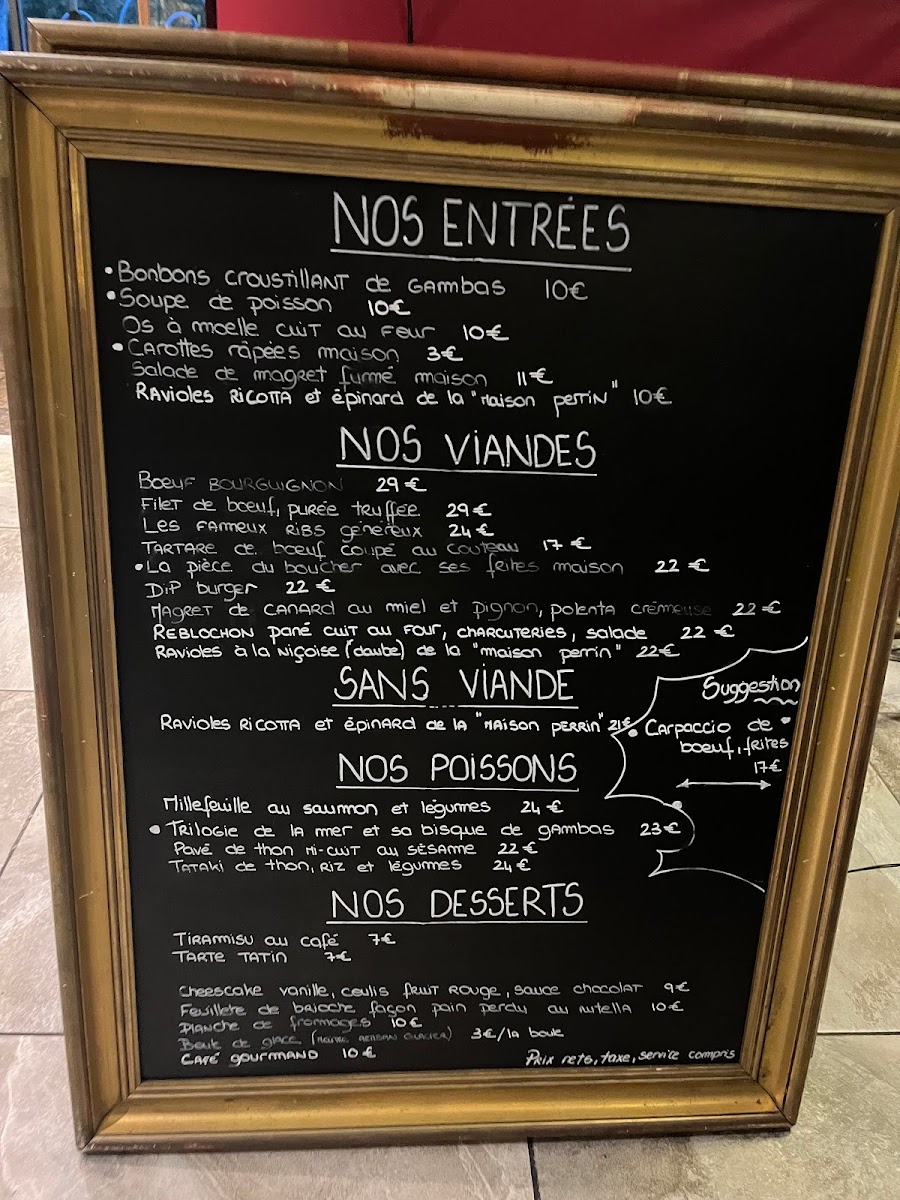 NOS ENTRÉES
• Bonbons croustillant de Gambas 10€
• Soupe de poisson 10€
Os à moelle cuit au Feur 10€
• Carottes râpées maison 3€
Salade de magret fumé maison 11€
Ravioles Ricotta et épinard de la "Maison perrin" 10€
NOS VIANDES
Boeuf BOURGUIGNON 29€
Filet de boeuf, purée truffée 29€
Les fameux Ribs généreux 24€
Tartare de boeuf coupé au couteau 17€
• La pièce du boucher avec ses frites maison 22€
Dip burger 22€
Magret de canard au miel et pignon, polenta crémeuse 22€
Reblochon pané cuit au four, charcuteries, salade 22€
Ravioles à la niçoise (daube) de la "maison perrin" 22€
SANS VIANDE
Ravioles Ricotta et épinard de la "Maison perrin" 21€
Suggestion
• Carpaccio de •
boeuf, frites
17€
NOS POISSONS
Millefeuille au saumon et légumes 24€
• Trilogie de la mer et sa bisque de gambas 23€
Pavé de thon mi-cuit au sésame 22€
Tataki de thon, riz et légumes 24€
NOS DESSERTS
Tiramisu au café 7€
Tarte tatin 7€
Cheescake vanille, coulis fruit rouge, sauce chocolat 9€
Feuilleté de brioche façon pain perdu au nutella 10€
Planche de fromages 10€
Boule de glace ( artisan glacier) 3€/la boule
Café gourmand 10€
Prix nets, taxe, service compris